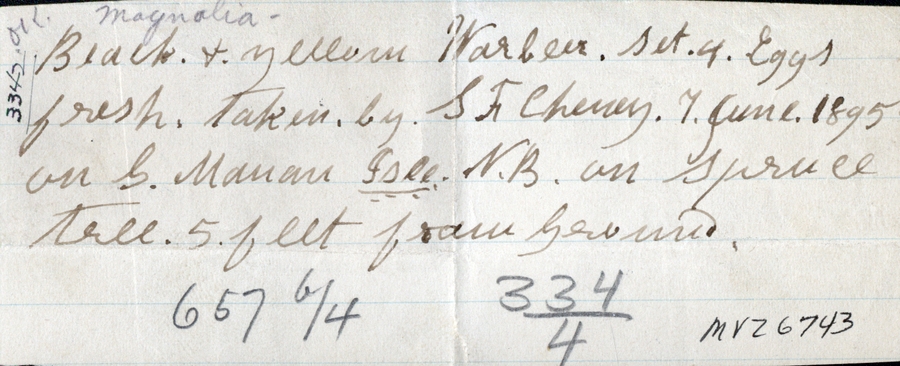 Magnolia -
3345 OK.
Black. & yellow Warbler. Set. 4. Eggs
fresh. Taken. by. S F Cheney. 7. June. 1895
on G. Manan Isle. N.B. on Spruce
Tree. 5. feet from Ground.
657 6/4
334/4
MVZ 6743